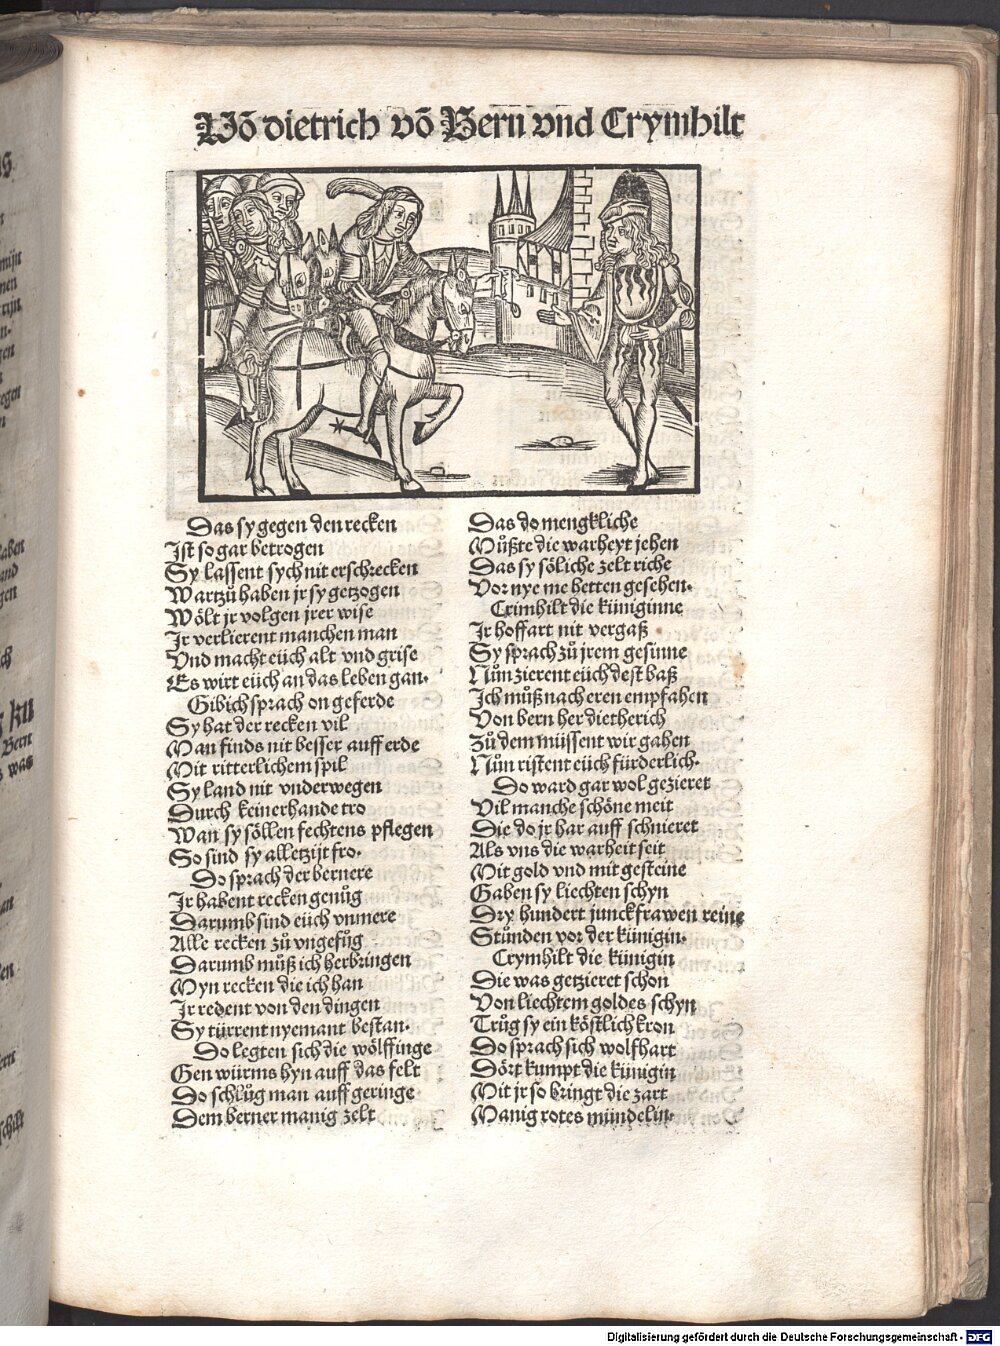 Võ dietrich võ Bern vnd Crymhilt
Das sy gegen den recken
Ist so gar betrogen
Sy lassent sych nit erschrecken
Wartzů haben jr sy getzogen
Wölt jr volgen jrer wise
Ir verlierent manchen man
Vnd macht eüch alt vnd grise
Es wirt eüch an das leben gan.
Gibich sprach on geferde
Sy hat der recken vil
Man finds nit besser auff erde
Mit ritterlichem spil
Sy land nit vnderwegen
Durch keinerhande tro
Wan sy söllen fechtens pflegen
So sind sy alletzijt fro.
Do sprach der bernere
Ir habent recken genůg
Darumb sind eüch vnmere
Alle recken zů vngefůg
Darumb můß ich herbringen
Myn recken die ich han
Ir redent von den dingen
Sy türrent nyemant bestan.
Do legten sich die wölffinge
Gen würms hyn auff das felt
Do schlůg man auff geringe
Dem berner manig zelt
Das do mengkliche
Můßte die warheyt jehen
Das sy söliche zelt riche
Vor nye me hetten gesehen.
Crimhilt die küniginne
Ir hoffart nit vergaß
Sy sprach zů jrem gesinne
Nůn zierent eüch dest baß
Ich můß nach eren empfahen
Von bern her dietherich
Zů dem müssent wir gahen
Nůn ristent eüch fürderlich.
Do ward gar wol gezieret
Vil manche schöne meit
Die do jr har auff schnieret
Als vns die warheit seit
Mit gold vnd mit gesteine
Gaben sy liechten schyn
Dry hundert junckfrawen reine
Stůnden vor der künigin.
Crymhilt die künigin
Die was getzieret schon
Von liechtem goldes schyn
Trůg sy ein köstlich kron
Do sprach sich wolfhart
Dört kumpt die künigin
Mit jr so bringt die zart
Manig rotes mündelin.
Digitalisierung gefördert durch die Deutsche Forschungsgemeinschaft - DFG